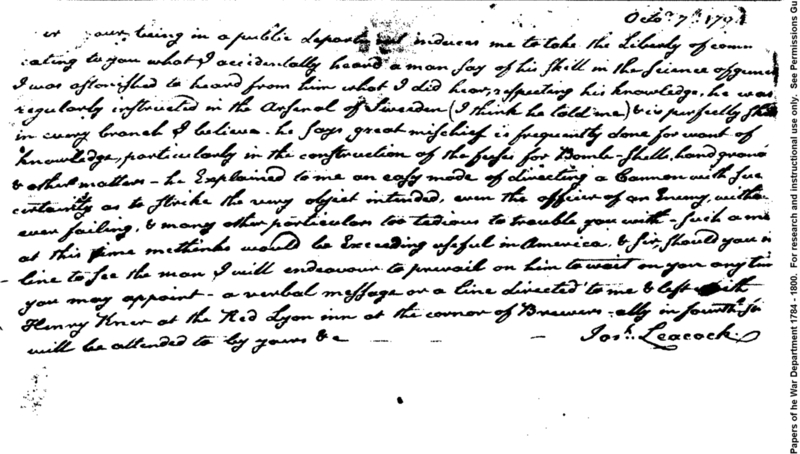 Octo.r 7th 1794
your being in a public department induces me to take the Liberty of comm
cating to you what I accidentally heard a man say of his skill in the Science of
I was astonished to heard from him what I did hear, respecting his knowledge, he was
regularly instructed in the Arsenal of Sweeden (I think he told me) & is perfectly
in every branch I believe. he says great mischief is frequently done for want of
knowledge, particularly in the construction of the fuses for Bomb-Shells, hand grana
& other matters - he Explained to me an easy mode of directing a Cannon with suc
certainty as to strike the very object intended, even the officer of an Enemy, witho
ever failing, & many other particulars too tedious to trouble you with - such a ma
at this time methinks would be Exceeding useful in America, & Sir, should you in
line to see the man I will endeavour to prevail on him to wait on you any tim
you may appoint - a verbal message or a line directed to me & left with
Henry Knerr at the Red Lyon inn at the corner of Brewers-ally in fourth St
will be attended to by yours &c
Josh. Leacock.
Papers of he War Department 1784 - 1800. For research and instructional use only. See Permissions Gu